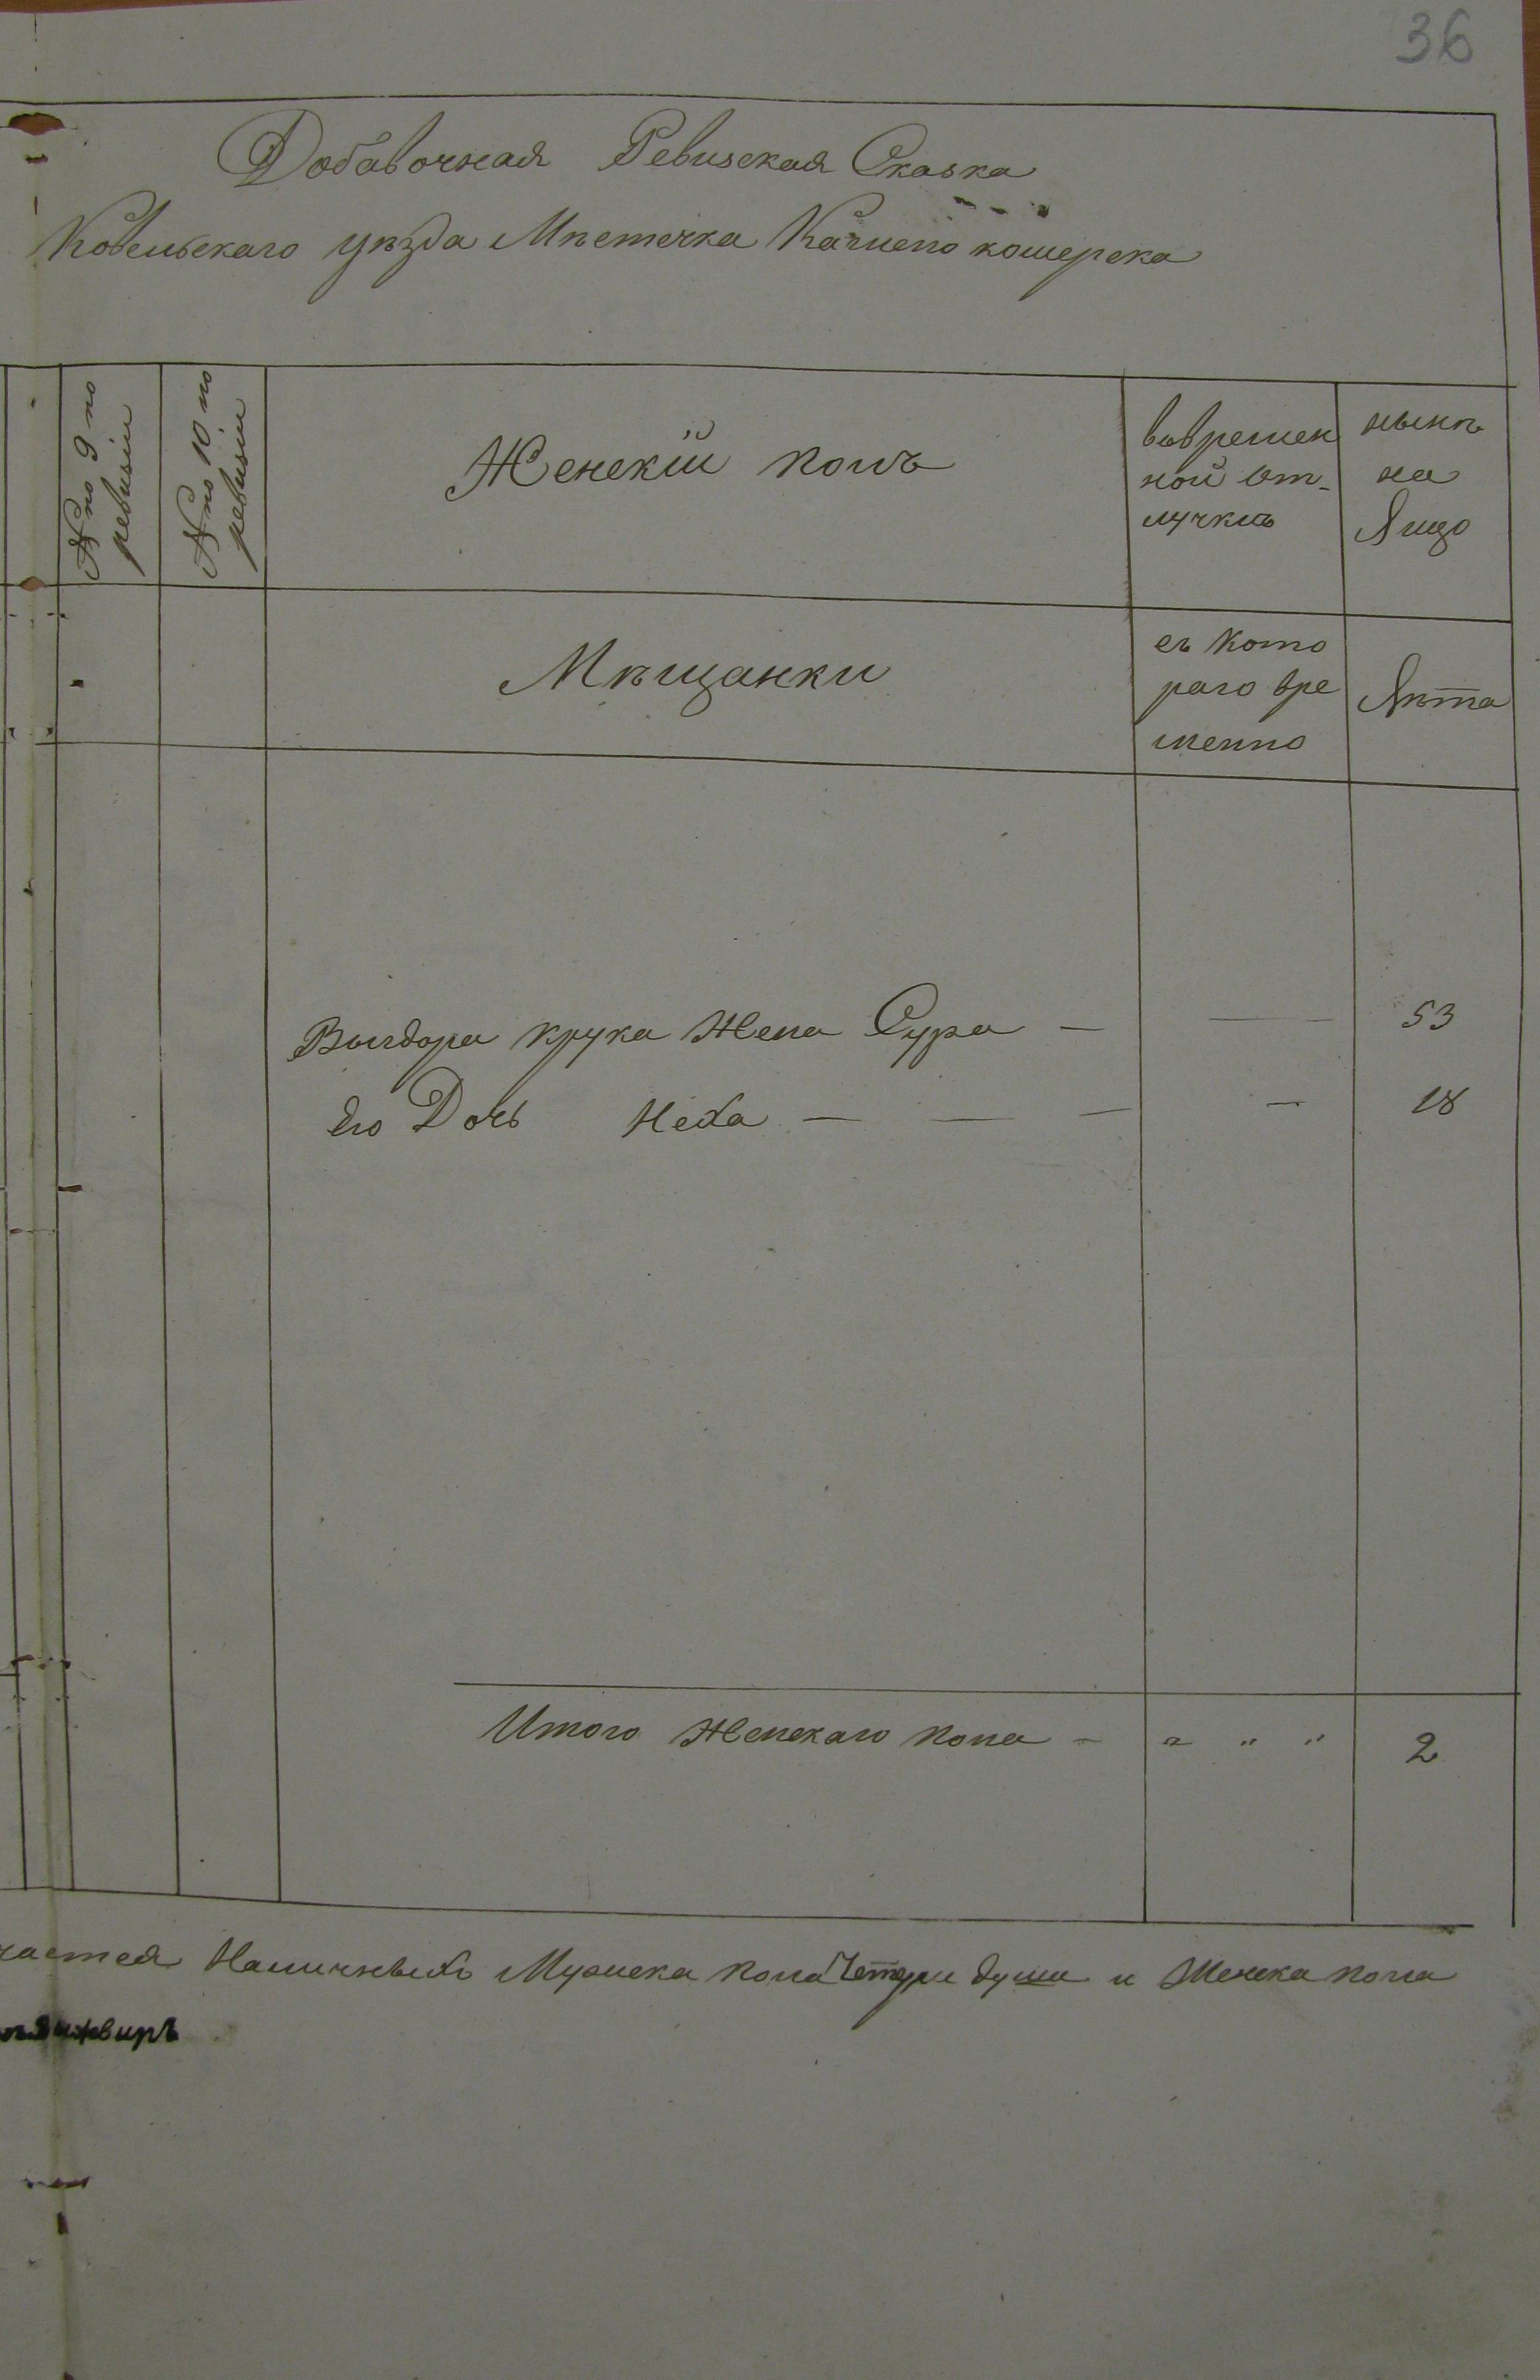 36
Добавочная Ревизская Сказка
Ковельскаго уѣзда Мѣстечка Камено кошерска
№ по 9 по
ревизіи
№ по 10 по
ревизіи
Женскій полъ
вовремен
ной от-
лучкѣ
нынѣ
на
Лицо
Мѣщанки
съ Кото
раго вре
менно
Лѣта
Вигдора Крука Жена Сура — — 53
Его Дочь Неха — — — — 18
Итого Женскаго пола - " " " 2
чается Наличныхъ Мужска пола Четыри души и Женска пола